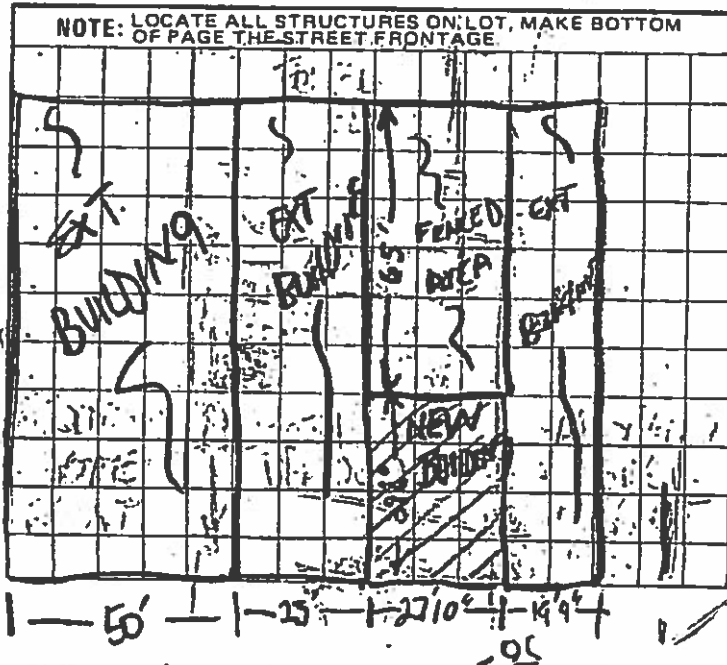 NOTE: LOCATE ALL STRUCTURES ON LOT, MAKE BOTTOM
OF PAGE THE STREET FRONTAGE
EXT.
BUILDING
EXT
BUILDING
65'
FENCED
AREA
EXT
NEW
BUILDING
50'
25'
27'10"
19'9"